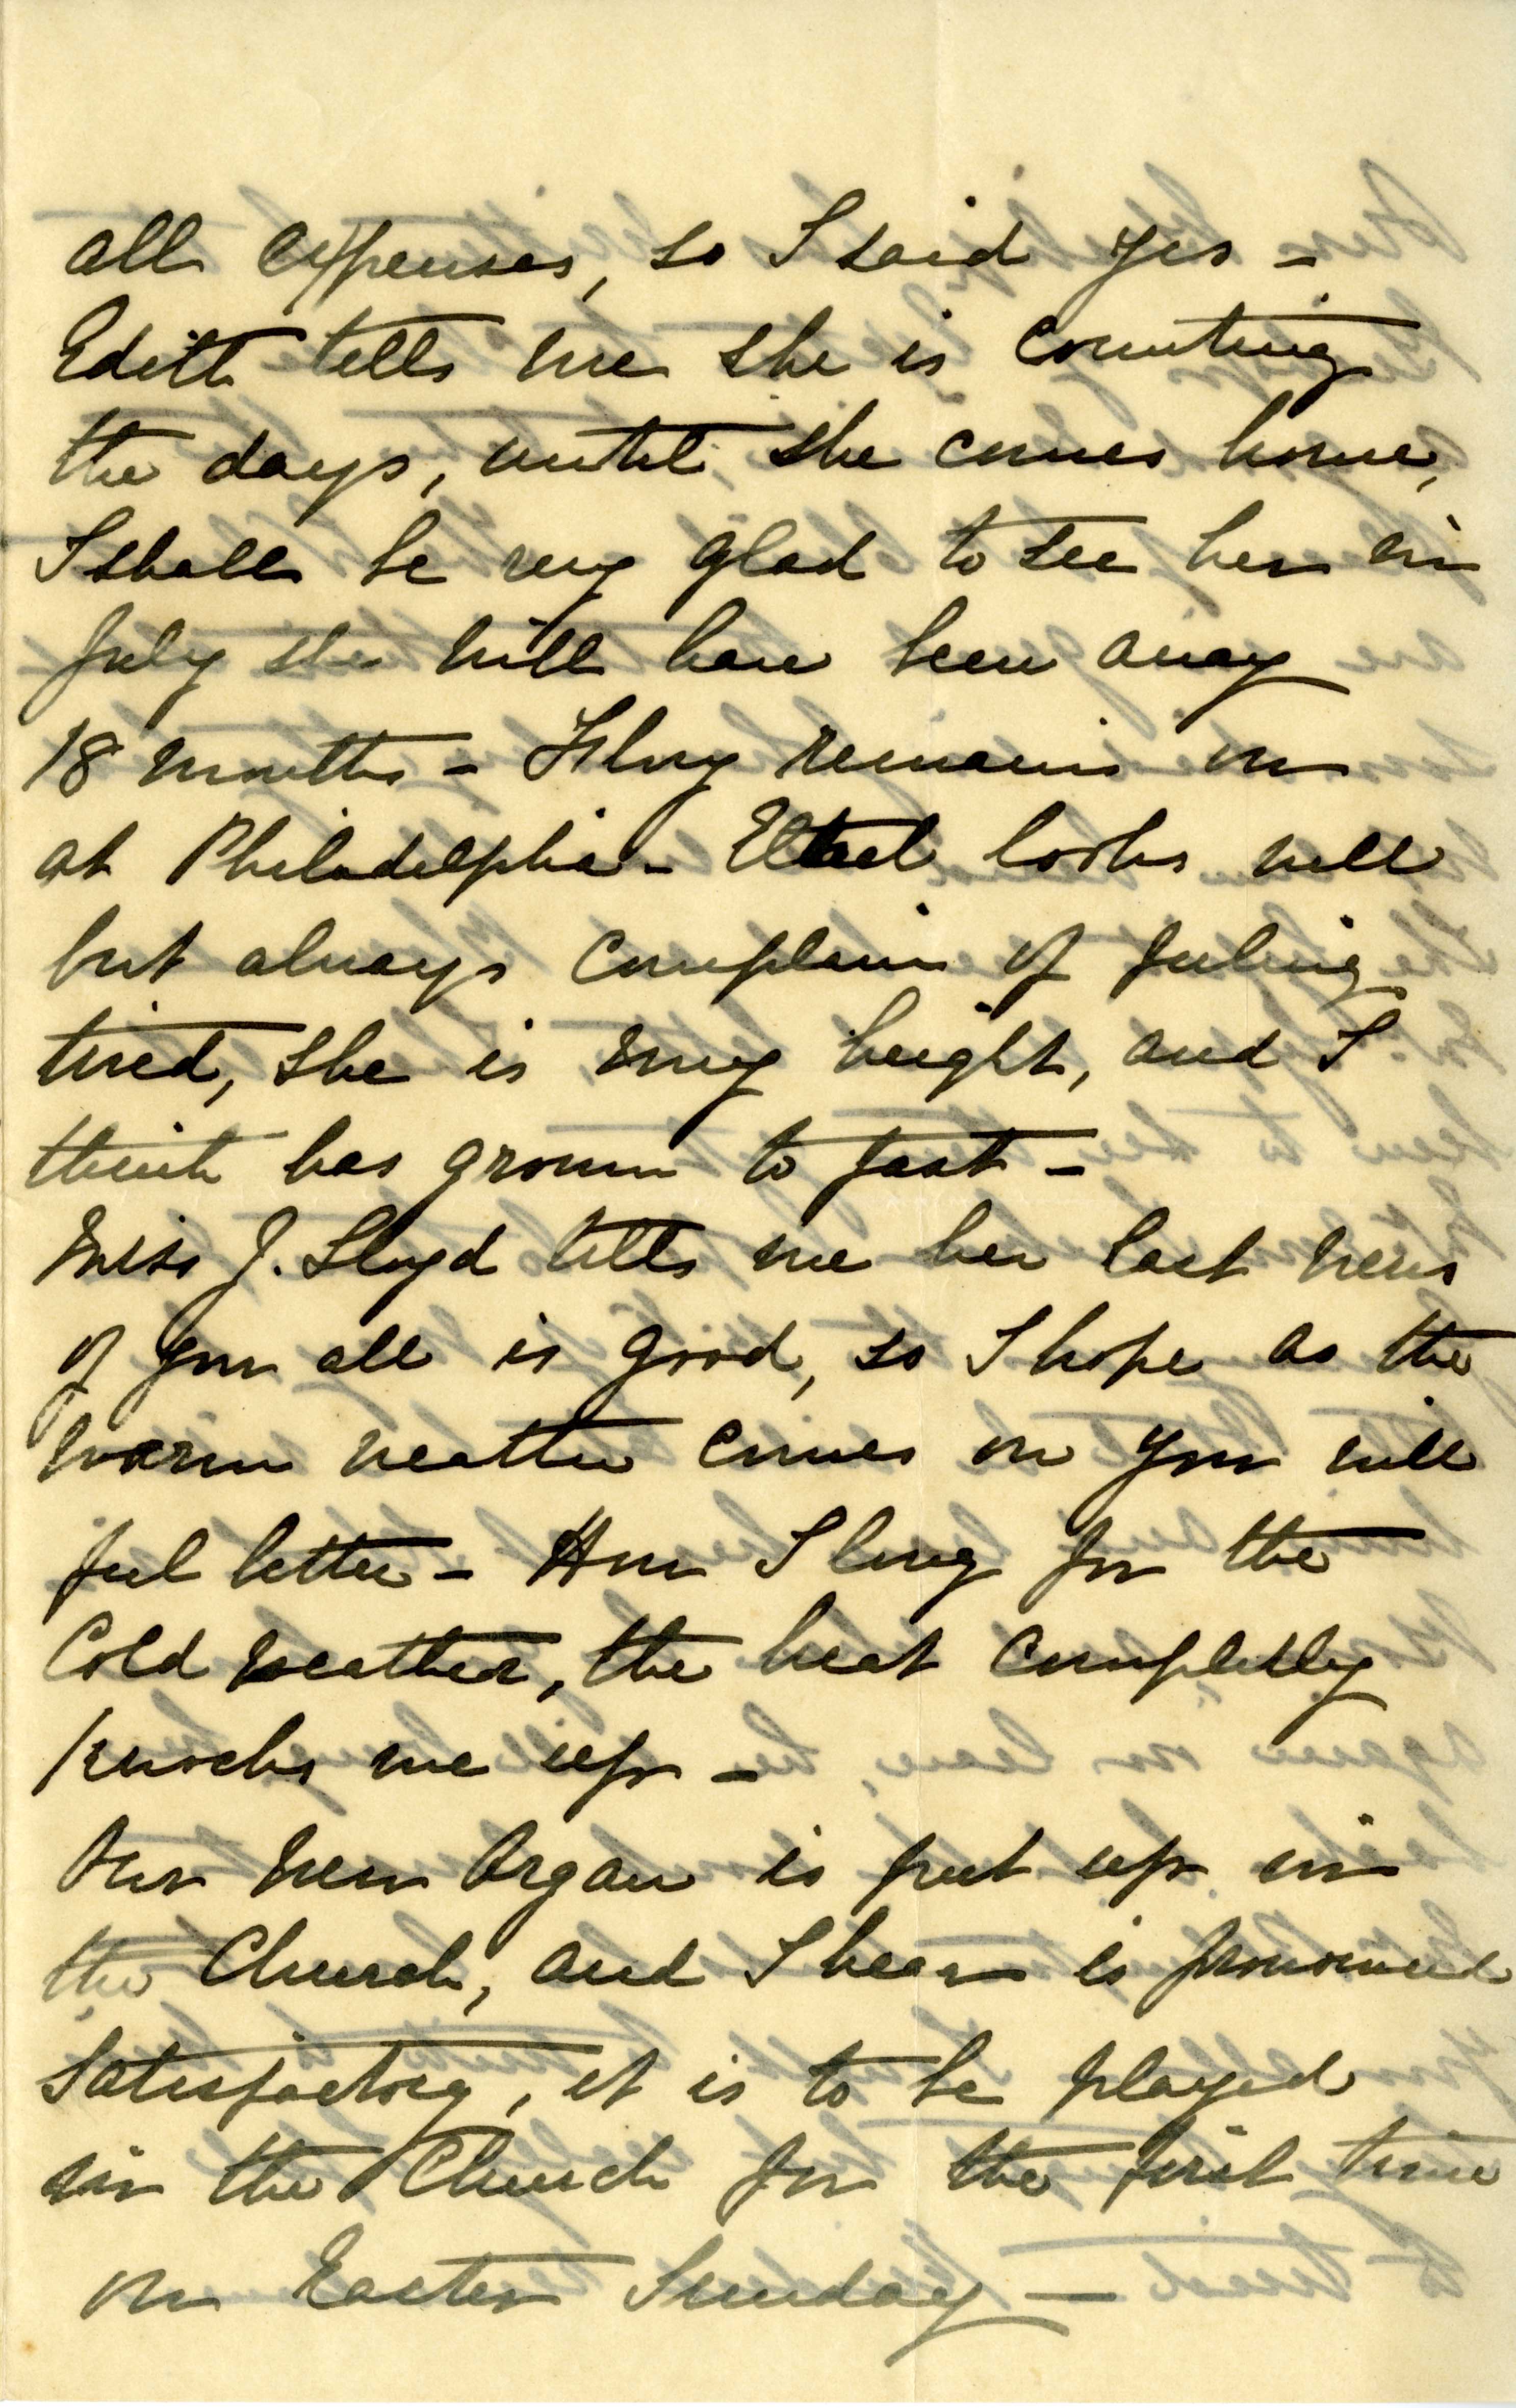 all expenses, so I said yes –
Edith tells me she is counting
the days, until she comes home,
I shall be very glad to see her in
July she will have been away
18 months – Flory remains on
at Philadelphia – Ethel looks well
but always complains of feeling
tired, she is my height, and I
think has grown to fast –
Miss J. Lloyd tells me her last news
of you all is good, so I hope as the
warm weather comes on you will
feel better – How I long for the
Cold weather, the heat completely
knocks me up –
Our new Organ is put up in
the Church, and I hear is pronounced
Satisfactory, it is to be played
in the Church for the first time
on Easter Sunday –